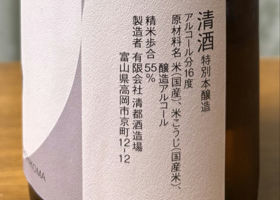 清酒 特別本醸造
アルコール分16度
原材料名 米(国産)、米こうじ(国産米)、
醸造アルコール
精米歩合 55%
製造者 有限会社 清都酒造場
富山県高岡市京町12-12